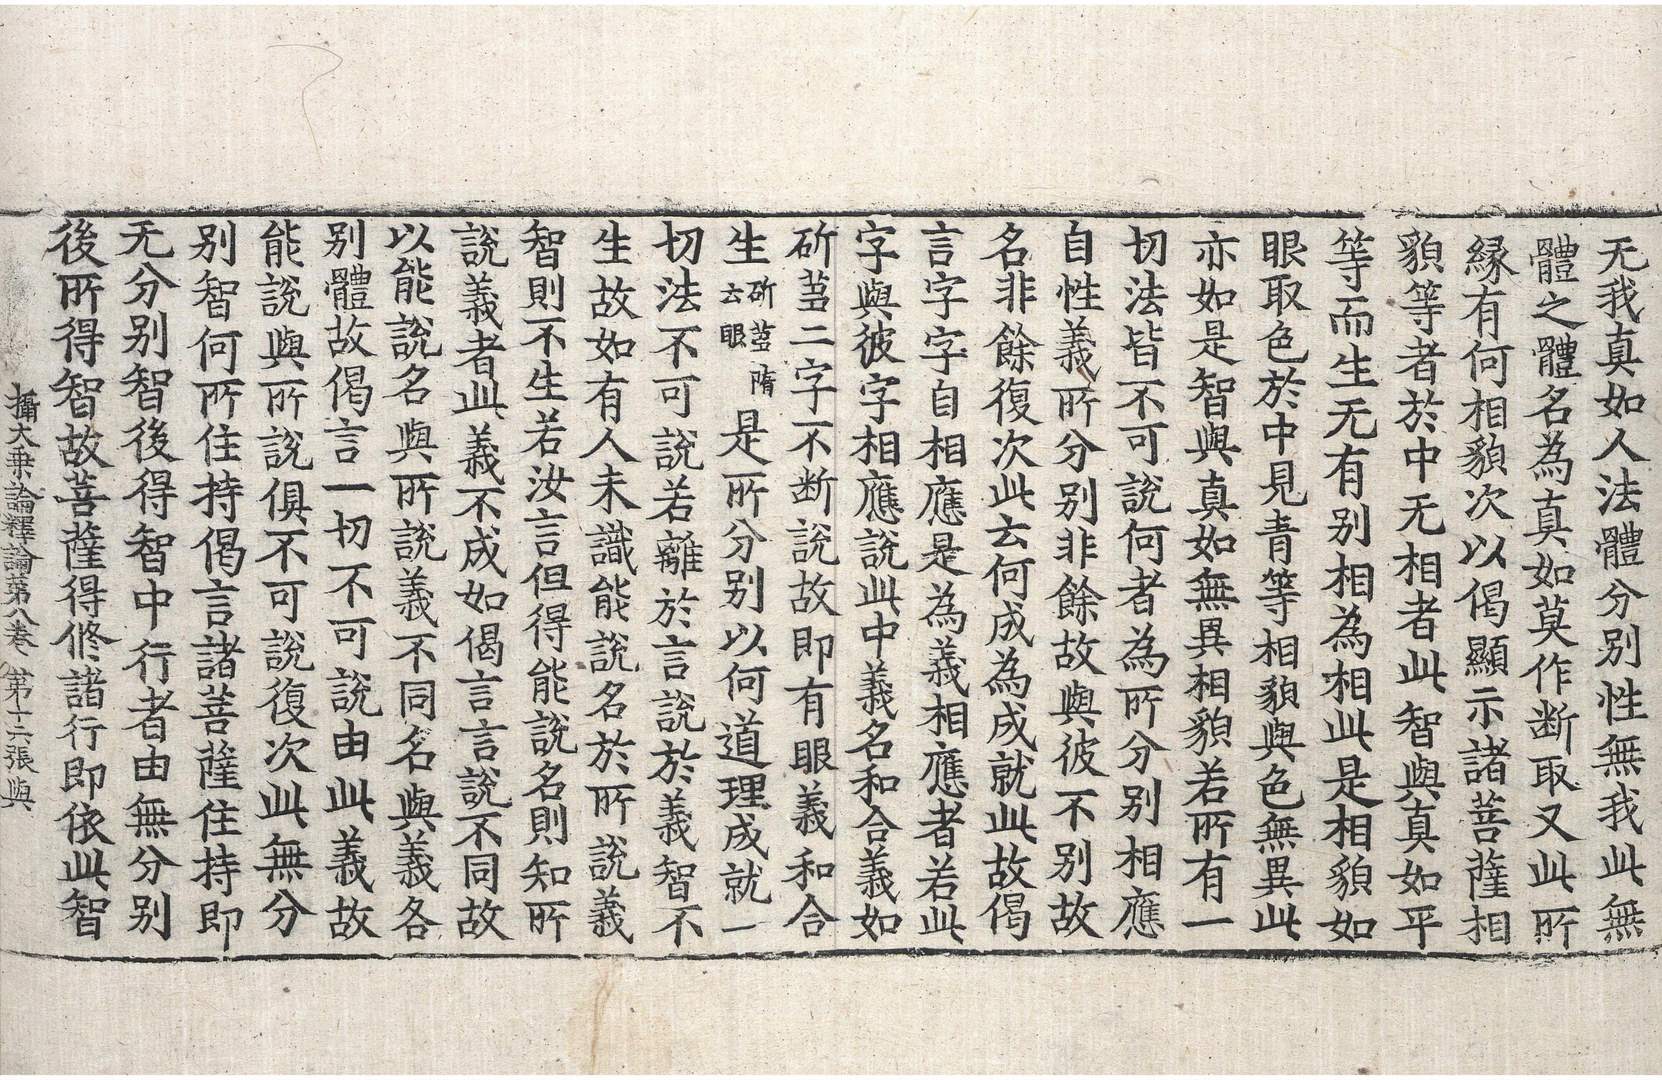 无我真如人法體分别性無我此無
體之體名為真如莫作断取又此所
縁有何相貌次以偈顯示諸菩薩相
貌等者於中无相者此智與真如平
等而生无有别相為相此是相貌如
眼取色於中見青等相貌與色無異此
亦如是智與真如無異相貌若所有一
切法皆不可說何者為所分别相應
自性義所分别非餘故與彼不别故
名非餘復次此云何成為成就此故偈
言字字自相應是為義相應者若此
字與彼字相應說此中義名和合義如
斫蒭二字不断說故即有眼義和合
生斫蒭隋云眼是所分别以何道理成就一
切法不可說若離於言說於義智不
生故如有人未識能說名於所說義
智則不生若汝言但得能說名則知所
說義者此義不成如偈言言說不同故
以能說名與所說義不同名與義各
别體故偈言一切不可說由此義故
能說與所說俱不可說復次此無分
别智何所住持偈言諸菩薩住持即
无分别智後得智中行者由無分别
後所得智故菩薩得修諸行即依此智
攝大乗論釋論第八卷 第十二張 與